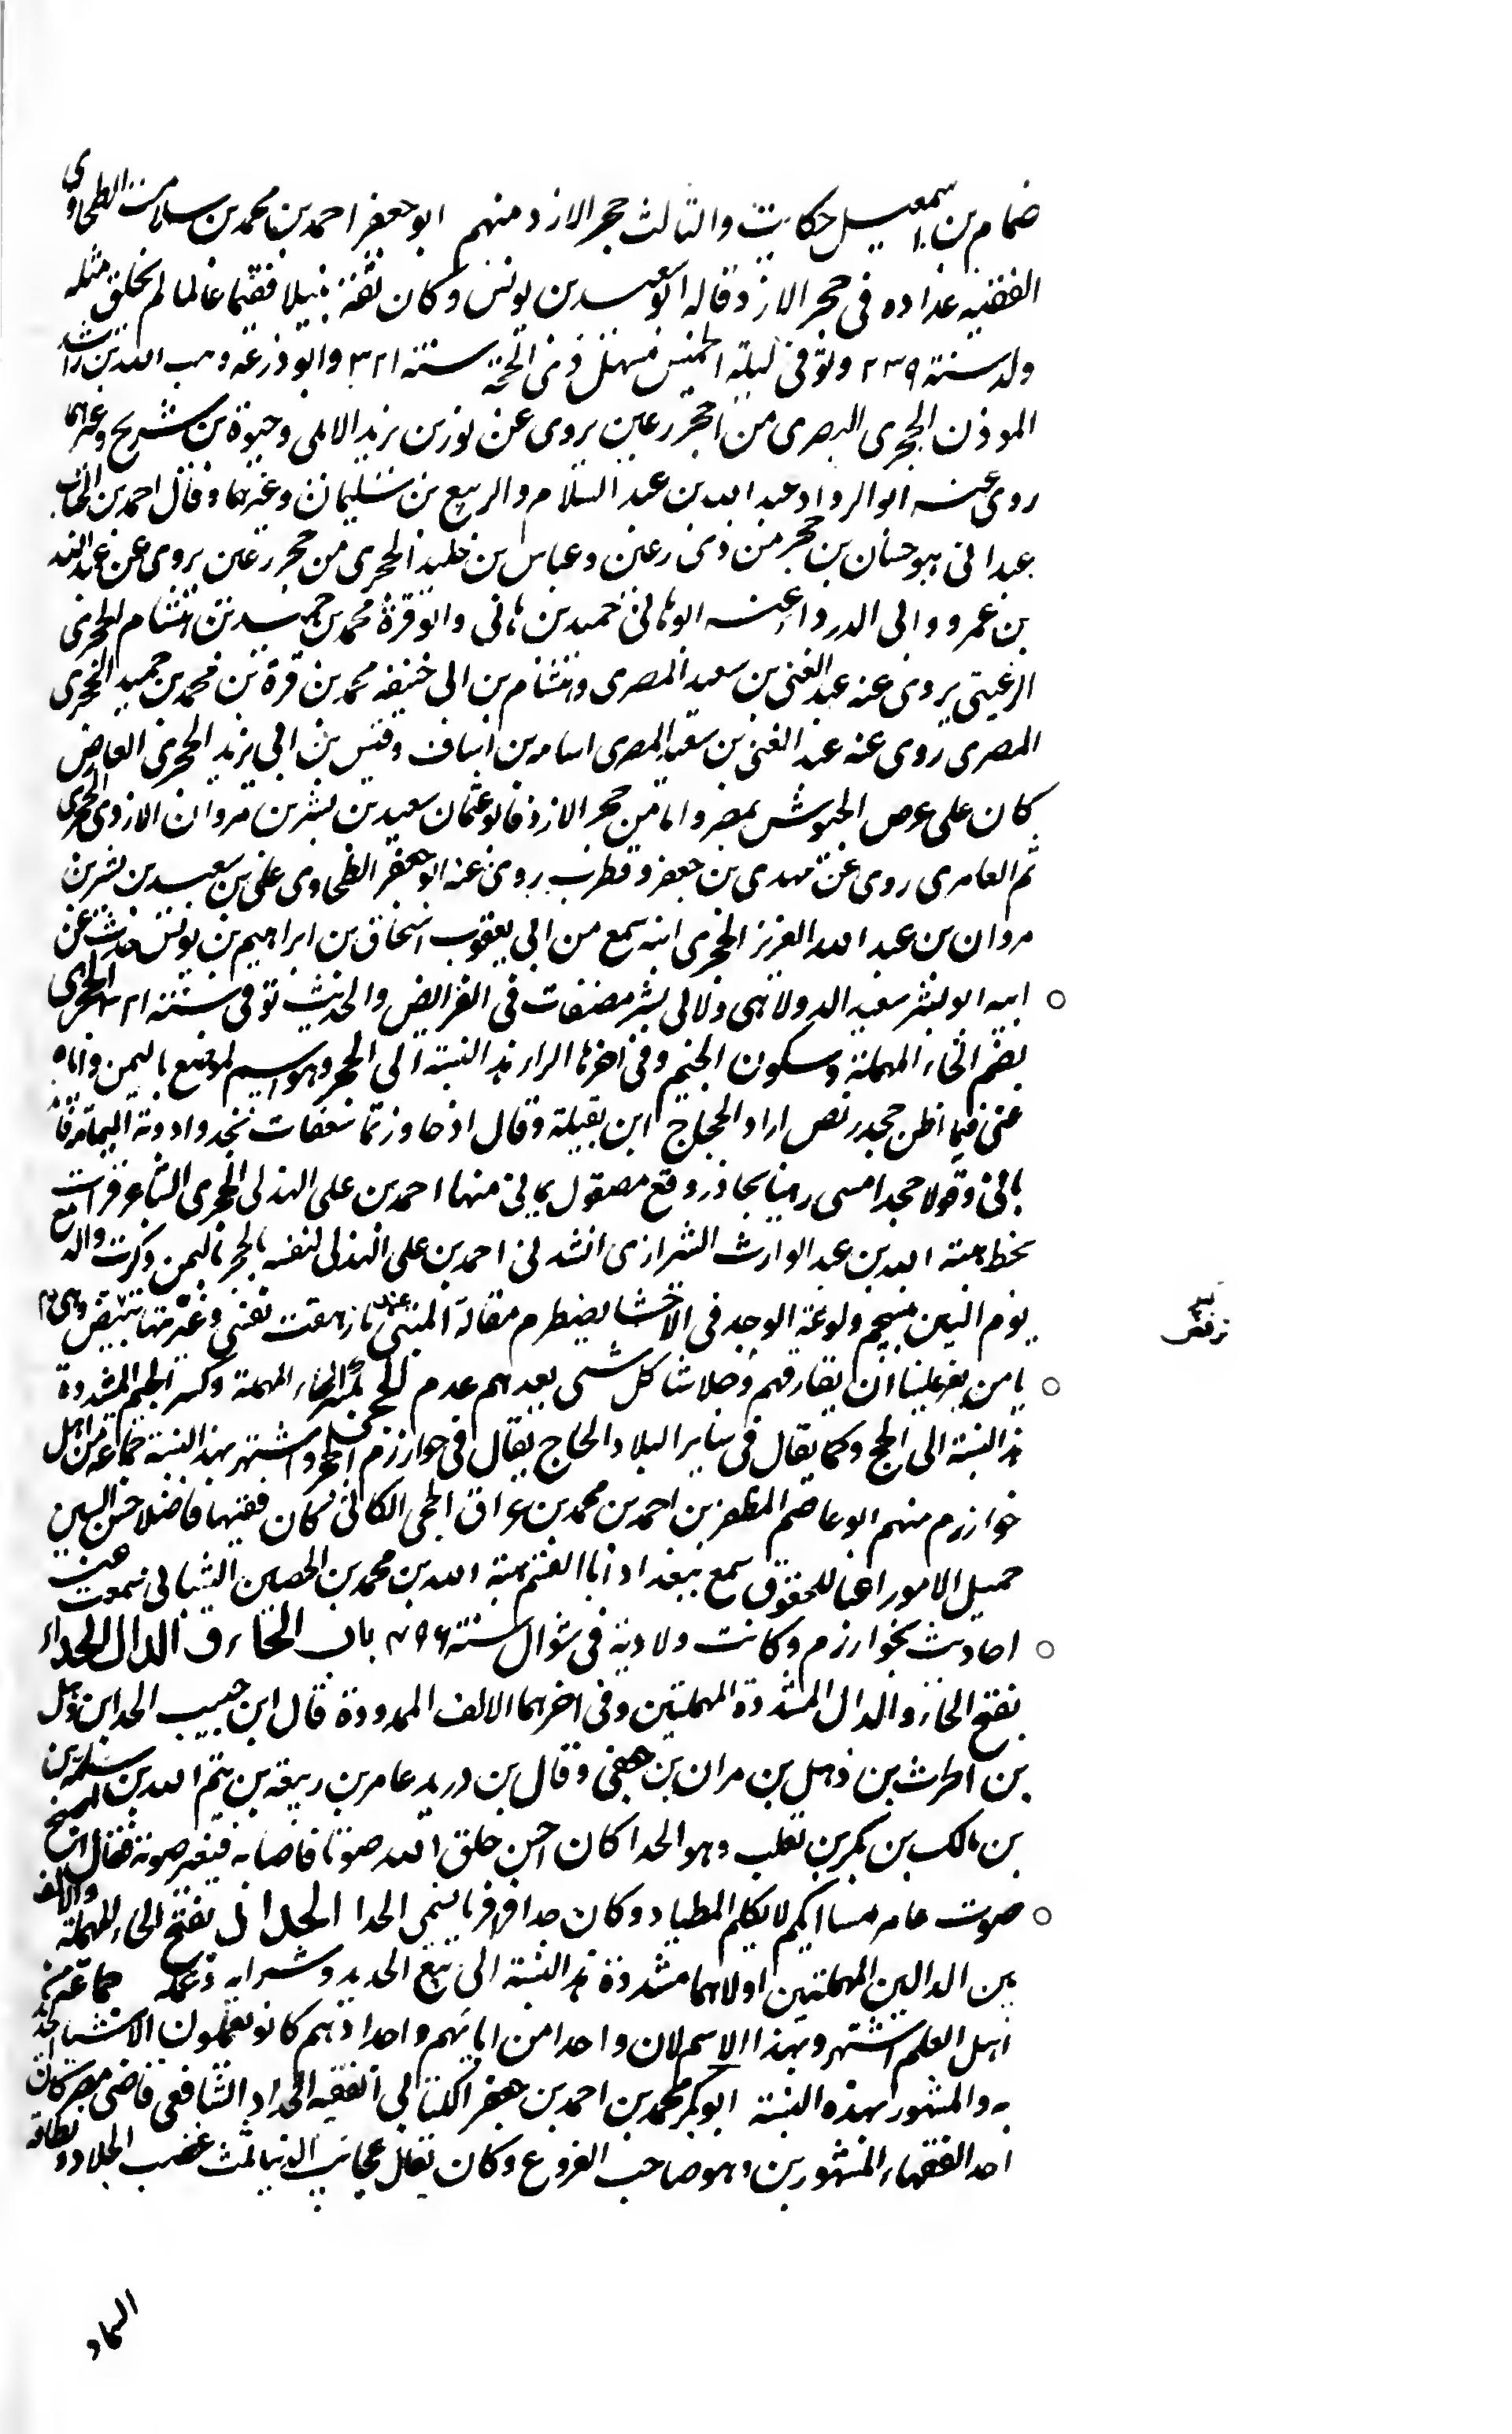 ضمام بن اسمعيل حكايت والثالث حجر الازد منهم ابو جعفر احمد بن محمد بن سلامة الطحاوى
الفقيه عداده فى حجر الازد قاله ابو سعيد بن يونس وكان ثقة نبيلا فقيها عالما لم يخلق مثله
ولد سنة ٢٣٩ وتوفى ليلة الخميس مستهل ذى الحجة سنة ٣٢١ وابو زرعه وهب الله بن راشد
الموذن الحجرى البصرى من حجر رعين يروى عن ثور بن يزيد الايلى وحيوة بن شريح وغيرهما
روى عنه ابو الرداد عبد الله بن عبد السلام والربيع بن سليمان وغيرهما وقال احمد بن الحباب
هو حسان بن حجر من ذى رعين وعباس بن خليد الحجرى من حجر رعين يروى عن عبد الله
بن عمرو وابى الدردا عنه ابو هانى حميد بن هانى وابو قرة محمد بن حميد بن هشام الحجرى
الرعينى يروى عنه عبد الغنى بن سعيد المصرى وهشام بن ابى خنيفه محمد بن قرة بن محمد بن حميد الحجرى
المصرى روى عنه عبد الغنى بن سعيد المصرى اسامه بن اساف وقيس بن ابى يزيد الحجرى العارض
كان على عرص الجيوش بمصر واما من حجر الازد فابو عثمان سعيد بن بشر بن مروان الازدى الحجرى
ثم العامرى روى عن مهدى بن جعفر وقطرب روى عنه ابو جعفر الطحاوى على بن سعيد بن بشر بن
مروان بن عبد الله العزيز الحجرى ابنه سمع من ابى يعقوب اسحاق بن ابراهيم بن يونس حدث عن
ابيه ابو بشر سعيد الدولابى ولابى بشر مصنفات فى الفرايض والحديث توفى سنة ٣٢١ الحجرى
بضم الحاء المهملة وسكون الجيم وفى اخرها الراء هذا النسبة الى الحجر وهو اسم لموضع باليمن واياه
عنى فيما اظن جحدر لص اراد الحجاج ابن بقيلة وقال اذ جاوزتما سعفات نجد واودية اليمامة فا
يانى وقولا جحدر امسى رهينا يحاذر وقع مصقول يمانى منها احمد بن على الهذلى الحجرى الشاعر قرات
بخط هبة الله بن عبد الوارث الشرازى انشدنى احمد بن على الهذلى لنفسه بالحجر باليمن ذكرت والدمع
يوم البين منسجم ولوعة الوجد فى الاحشا يضطرم مقالة المتنبى عند ما زهقت نفسى وعبرتها تفيض
يا من يعز علينا ان نفارقهم وجداننا كل شى بعدهم عدم الحجى بكسر الحاء المهملة وكسر الجيم المشددة
هذا النسبة الى الحج وكما يقال فى ساير البلاد الحاج يقال فى خوارزم الحجى واشتهر بهذا النسبة جماعه من اهل
خوارزم منهم ابو عاصم المظفر بن احمد بن محمد بن عراق الحجى الكاثى كان فقيها فاضلا حسن السير
جميل الامور راعيا للحقوق سمع ببغداد ابا القسم هبة الله بن محمد بن الحصين الشيبانى سمعت عنه
احاديث بخوارزم وكانت ولادته فى شوال سنة ٤٩٦ باب الحاء والدال الحداء
بفتح الحاء والدال المشددة المهملتين وفى اخرهما الالف الممدودة قال ابن حبيب الحدا بن ذهل
بن الحرث بن ذهل بن مران بن جعفى وقال بن دريد عامر بن ربيعه بن تيم الله بن اسامة بن
بن مالك بن بكر بن تغلب وهو الحدا كان احسن خلق الله صوتا فاصابه فتغير صوته فقال
صوت عامر مسا لا يكلم المطيا وكان حدا قراقريا يسمى الحدا الحدادى بفتح الحاء المهملة والالف
بين الدالين المهملتين اولاهما مشددة هذا النسبة الى بيع الحديد وشرايه وعمله جماعة من
اهل العلم اشتهر وبهذا الاسم لان واحدا من ابايهم واجدادهم كانو يعملون الاشيا
به والمشهور بهذه النسبة ابو بكر محمد بن احمد بن جعفر الكنانى الفقيه الحداد الشافعى قاضى مصر كان
احد الفقهاء المشهورين وهو صاحب الفروع وكان يقال عجايب الدنيا ثلث غضب الجلاد ونظافة
السماد